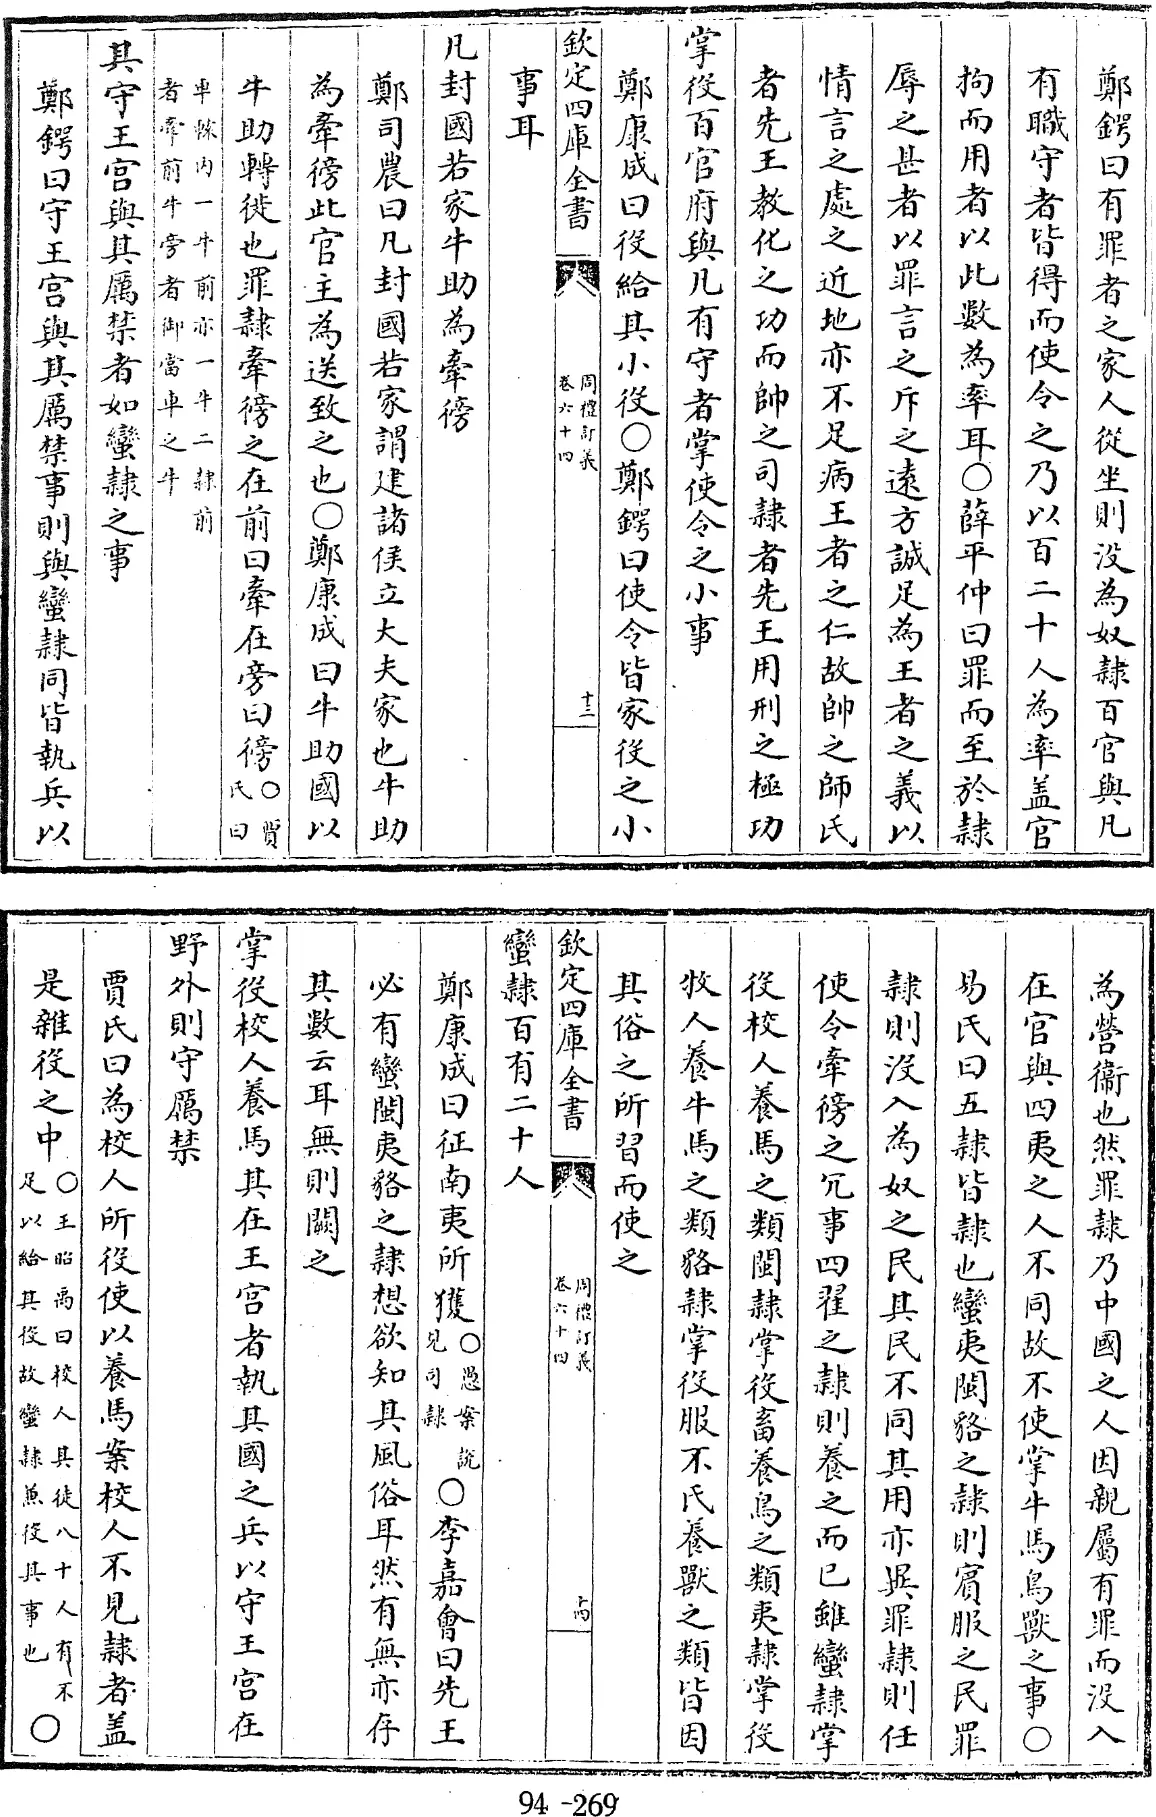 鄭鍔曰有罪者之家人從坐則没為奴隷百官與凡
有職守者皆得而使令之乃以百二十人為率盖官
拘而用者以此數為率耳○薛平仲曰罪而至於隷
辱之甚者以罪言之斥之逺方誠足為王者之義以
情言之處之近地亦不足病王者之仁故帥之師氏
者先王教化之功而帥之司隷者先王用刑之極功
掌役百官府與凡有守者掌使令之小事
鄭康成曰役給其小役○鄭鍔曰使令皆家役之小
欽定四庫全書
周禮訂義
卷六十四
十三
事耳
凡封國若家牛助為牽徬
鄭司農曰凡封國若家謂建諸侯立大夫家也牛助
為牽徬此官主為送致之也○鄭康成曰牛助國以
牛助轉徙也罪隷牽徬之在前曰牽在旁曰徬○賈
氏曰
車轅内一牛前亦一牛二隷前
者牽前牛旁者御當車之牛
其守王宫與其厲禁者如蠻隷之事
鄭鍔曰守王宫與其厲禁事則與蠻隷同皆執兵以
為營衞也然罪隷乃中國之人因親屬有罪而没入
在官與四夷之人不同故不使掌牛馬鳥獸之事○
易氏曰五隷皆隷也蠻夷閩貉之隷則賓服之民罪
隷則没入為奴之民其民不同其用亦異罪隷則任
使令牽徬之冗事四翟之隷則養之而已雖蠻隷掌
役校人養馬之類閩隷掌役畜養鳥之類夷隷掌役
牧人養牛馬之類貉隷掌役服不氏養獸之類皆因
其俗之所習而使之
欽定四庫全書
周禮訂義
卷六十四
十四
蠻隷百有二十人
鄭康成曰征南夷所獲○愚案説
見司隷○李嘉㑹曰先王
必有蠻閩夷貉之隷想欲知其風俗耳然有無亦存
其數云耳無則闕之
掌役校人養馬其在王宫者執其國之兵以守王宫在
野外則守厲禁
賈氏曰為校人所役使以養馬案校人不見隷者盖
是雜役之中○王昭禹曰校人其徒八十人有不
足以給其役故蠻隷兼役其事也○
94-269